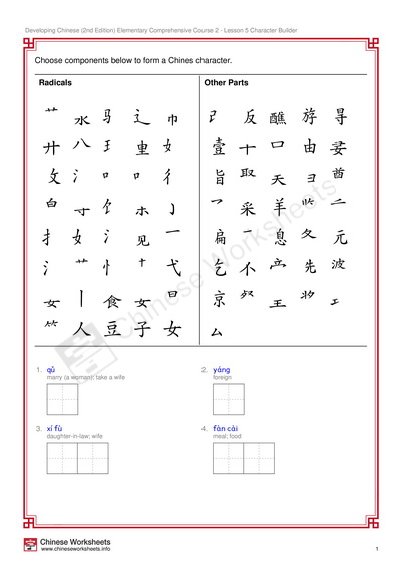 Developing Chinese (2nd Edition) Elementary Comprehensive Course 2 - Lesson 5 Character Builder
Choose components below to form a Chines character.
Radicals
Other Parts
艹 水 马 辶 巾
卩 反 醮 斿 寻
廾 八 王 重 女
壹 十 口 由 妻
攵 氵 口 口 彳
旨 取 天 彐 酋
白 寸 饣 木 亅
乛 采 羊 二
扌 女 氵 见 一
扁 亠 息 夂 元
氵 艹 忄 十 弋
乞 不 产 先 波
女 丨 食 女 日
京 王
⺮ 人 豆 子 女
厶
Chinese Worksheets
1. qǔ
marry (a woman); take a wife
2. yáng
foreign
3. xí fù
daughter-in-law; wife
4. fàn cài
meal; food
Chinese Worksheets
www.chineseworksheets.info
1